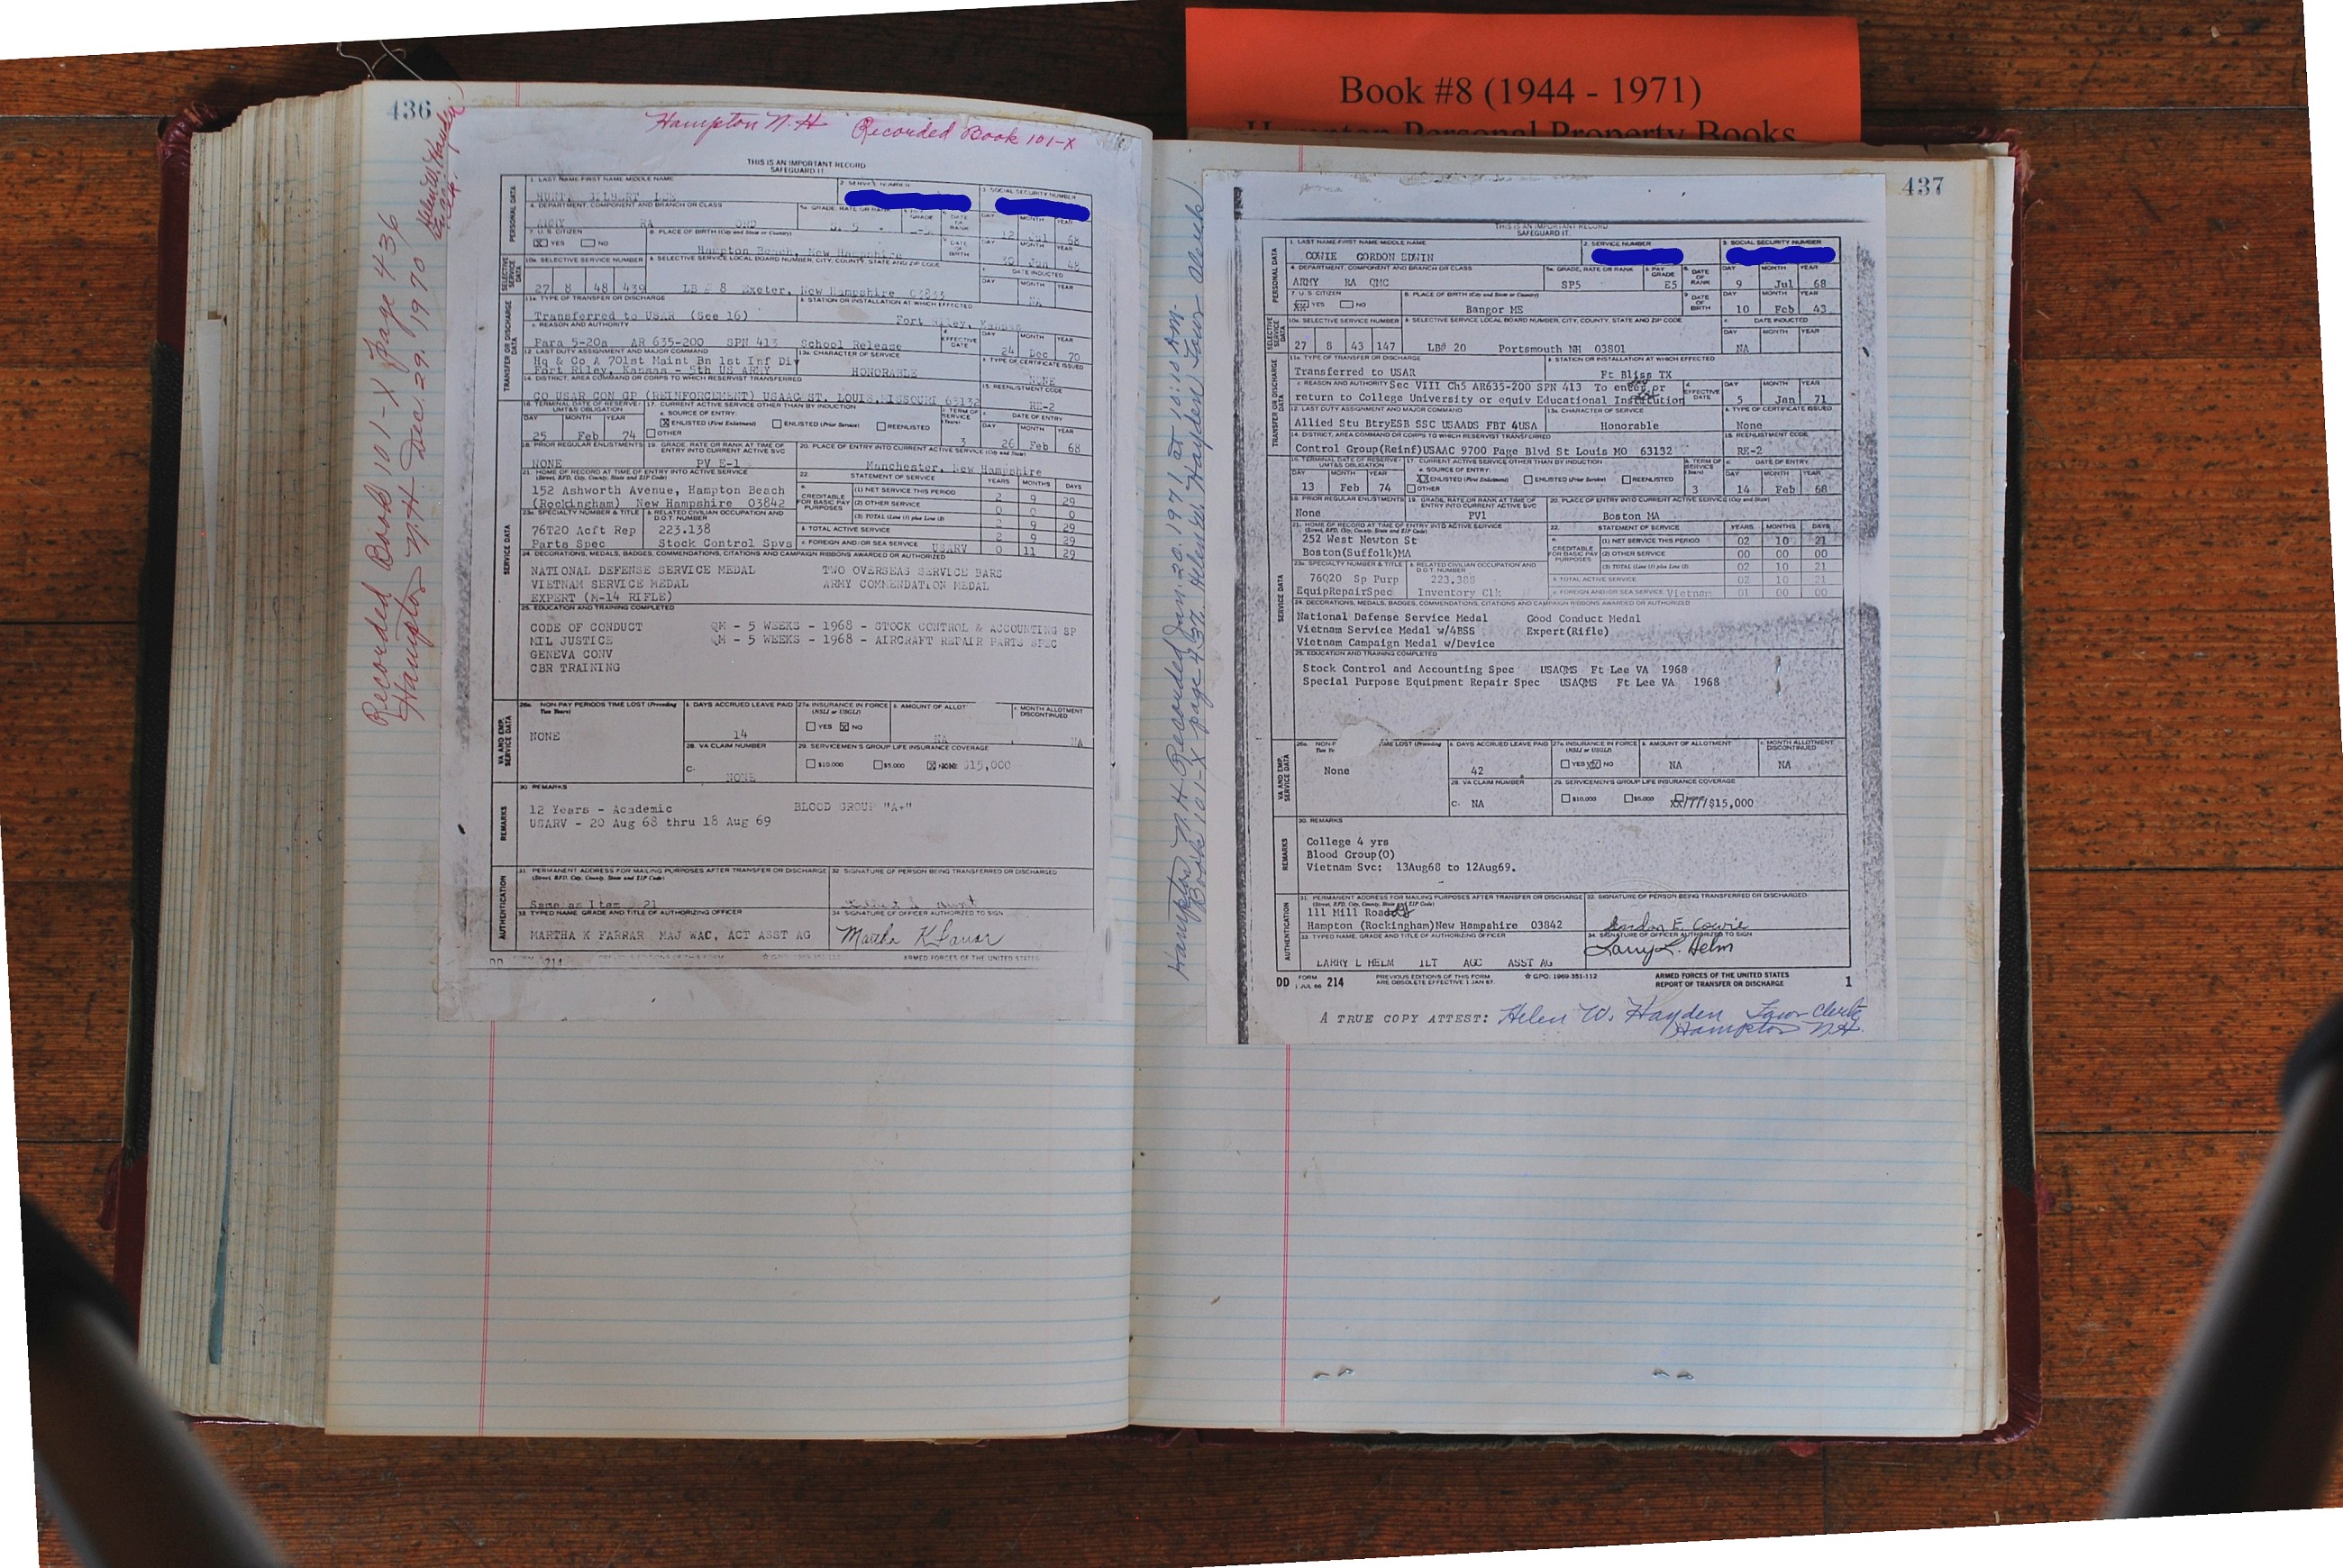 Book #8 (1944 - 1971)
Hampton Personal Property Books
436
Hampton N.H Recorded Book 101-X
Recorded Book 101-X Page 436
Hampton N.H. Dec. 29, 1970
THIS IS AN IMPORTANT RECORD
SAFEGUARD IT.
PERSONAL DATA
1. LAST NAME-FIRST NAME-MIDDLE NAME
2. SERVICE NUMBER
3. SOCIAL SECURITY NUMBER
4. DEPARTMENT, COMPONENT AND BRANCH OR CLASS
ARMY RA ORD
5a. GRADE, RATE OR RANK
GRADE
DATE OF RANK
DAY MONTH YEAR
12 Jul 68
7. U.S. CITIZEN
X YES NO
8. PLACE OF BIRTH (City and State or Country)
Hampton Beach, New Hampshire
DATE OF BIRTH
DAY MONTH YEAR
SELECTIVE SERVICE DATA
10a. SELECTIVE SERVICE NUMBER
27 8 48 439
b. SELECTIVE SERVICE LOCAL BOARD NUMBER, CITY, COUNTY, STATE AND ZIP CODE
LB # 8 Exeter, New Hampshire 03833
DATE INDUCTED
DAY MONTH YEAR
NA
TRANSFER OR DISCHARGE DATA
11a. TYPE OF TRANSFER OR DISCHARGE
Transferred to USAR (See 16)
b. STATION OR INSTALLATION AT WHICH EFFECTED
Fort Riley, Kansas
c. REASON AND AUTHORITY
Para 5-20a AR 635-200 SPN 413 School Release
EFFECTIVE DATE
DAY MONTH YEAR
24 Dec 70
12. LAST DUTY ASSIGNMENT AND MAJOR COMMAND
Hq & Co A 701st Maint Bn 1st Inf Div
Fort Riley, Kansas - 5th US ARMY
13a. CHARACTER OF SERVICE
HONORABLE
b. TYPE OF CERTIFICATE ISSUED
NONE
14. DISTRICT, AREA COMMAND OR CORPS TO WHICH RESERVIST TRANSFERRED
CO USAR CON GP (REINFORCEMENT) USAAC ST. LOUIS,MISSOURI 63132
15. REENLISTMENT CODE
RE-2
16. TERMINAL DATE OF RESERVE/
UMT&S OBLIGATION
DAY MONTH YEAR
25 Feb 74
17. CURRENT ACTIVE SERVICE OTHER THAN BY INDUCTION
a. SOURCE OF ENTRY:
X ENLISTED (First Enlistment) ENLISTED (Prior Service) REENLISTED
OTHER
b. TERM OF SERVICE (Years)
3
c. DATE OF ENTRY
DAY MONTH YEAR
26 Feb 68
18. PRIOR REGULAR ENLISTMENTS
NONE
19. GRADE, RATE OR RANK AT TIME OF
ENTRY INTO CURRENT ACTIVE SVC
PV E-1
20. PLACE OF ENTRY INTO CURRENT ACTIVE SERVICE (City and State)
Manchester, New Hampshire
SERVICE DATA
21. HOME OF RECORD AT TIME OF ENTRY INTO ACTIVE SERVICE
(Street, RFD, City, County, State and ZIP Code)
152 Ashworth Avenue, Hampton Beach
(Rockingham) New Hampshire 03842
22. STATEMENT OF SERVICE
YEARS MONTHS DAYS
a. CREDITABLE FOR BASIC PAY PURPOSES
(1) NET SERVICE THIS PERIOD 2 9 29
(2) OTHER SERVICE 0 0 0
(3) TOTAL (Line (1) plus Line (2)) 2 9 29
b. TOTAL ACTIVE SERVICE 2 9 29
c. FOREIGN AND/OR SEA SERVICE USARV 0 11 29
23a. SPECIALTY NUMBER & TITLE
76T20 Acft Rep
Parts Spec
b. RELATED CIVILIAN OCCUPATION AND
D.O.T. NUMBER
223.138
Stock Control Spvs
24. DECORATIONS, MEDALS, BADGES, COMMENDATIONS, CITATIONS AND CAMPAIGN RIBBONS AWARDED OR AUTHORIZED
NATIONAL DEFENSE SERVICE MEDAL TWO OVERSEAS SERVICE BARS
VIETNAM SERVICE MEDAL ARMY COMMENDATION MEDAL
EXPERT (M-14 RIFLE)
25. EDUCATION AND TRAINING COMPLETED
CODE OF CONDUCT QM - 5 WEEKS - 1968 - STOCK CONTROL & ACCOUNTING SP
MIL JUSTICE QM - 5 WEEKS - 1968 - AIRCRAFT REPAIR PARTS SPEC
GENEVA CONV
CBR TRAINING
VA AND EMP. SERVICE DATA
26a. NON-PAY PERIODS TIME LOST (Preceding Two Years)
NONE
b. DAYS ACCRUED LEAVE PAID
14
27a. INSURANCE IN FORCE
(NSLI or USGLI)
YES X NO
b. AMOUNT OF ALLOT
NA
c. MONTH ALLOTMENT
DISCONTINUED
NA
28. VA CLAIM NUMBER
C- NONE
29. SERVICEMEN'S GROUP LIFE INSURANCE COVERAGE
$10,000 $5,000 X NONE $15,000
REMARKS
30. REMARKS
12 Years - Academic BLOOD GROUP "A+"
USARV - 20 Aug 68 thru 18 Aug 69
AUTHENTICATION
31. PERMANENT ADDRESS FOR MAILING PURPOSES AFTER TRANSFER OR DISCHARGE
(Street, RFD, City, County, State and ZIP Code)
Same as Item 21
32. SIGNATURE OF PERSON BEING TRANSFERRED OR DISCHARGED
33. TYPED NAME, GRADE AND TITLE OF AUTHORIZING OFFICER
MARTHA K FARRAR MAJ WAC, ACT ASST AG
34. SIGNATURE OF OFFICER AUTHORIZED TO SIGN
Martha K Farrar
DD FORM 214
ARMED FORCES OF THE UNITED STATES
437
Hampton N.H. Recorded Jan. 20, 1971 at 10:10 A.M.
Book 101-X page 437. Helen W. Hayden Town Clerk
THIS IS AN IMPORTANT RECORD
SAFEGUARD IT.
PERSONAL DATA
1. LAST NAME-FIRST NAME-MIDDLE NAME
COWIE GORDON EDWIN
2. SERVICE NUMBER
3. SOCIAL SECURITY NUMBER
4. DEPARTMENT, COMPONENT AND BRANCH OR CLASS
ARMY RA QMC
5a. GRADE, RATE OR RANK
SP5
b. PAY GRADE
E5
6. DATE OF RANK
DAY MONTH YEAR
9 Jul 68
7. U.S. CITIZEN
XX YES NO
8. PLACE OF BIRTH (City and State or Country)
Bangor ME
9. DATE OF BIRTH
DAY MONTH YEAR
10 Feb 43
SELECTIVE SERVICE DATA
10a. SELECTIVE SERVICE NUMBER
27 8 43 147
b. SELECTIVE SERVICE LOCAL BOARD NUMBER, CITY, COUNTY, STATE AND ZIP CODE
LB# 20 Portsmouth NH 03801
c. DATE INDUCTED
DAY MONTH YEAR
NA
TRANSFER OR DISCHARGE DATA
11a. TYPE OF TRANSFER OR DISCHARGE
Transferred to USAR
b. STATION OR INSTALLATION AT WHICH EFFECTED
Ft Bliss TX
c. REASON AND AUTHORITY Sec VIII Ch5 AR635-200 SPN 413 To enter or
return to College University or equiv Educational Institution
d. EFFECTIVE DATE
DAY MONTH YEAR
5 Jan 71
12. LAST DUTY ASSIGNMENT AND MAJOR COMMAND
Allied Stu BtryESB SSC USAADS FBT 4USA
13a. CHARACTER OF SERVICE
Honorable
b. TYPE OF CERTIFICATE ISSUED
None
14. DISTRICT, AREA COMMAND OR CORPS TO WHICH RESERVIST TRANSFERRED
Control Group(Reinf)USAAC 9700 Page Blvd St Louis MO 63132
15. REENLISTMENT CODE
RE-2
16. TERMINAL DATE OF RESERVE/
UMT&S OBLIGATION
DAY MONTH YEAR
13 Feb 74
17. CURRENT ACTIVE SERVICE OTHER THAN BY INDUCTION
a. SOURCE OF ENTRY:
XX ENLISTED (First Enlistment) ENLISTED (Prior Service) REENLISTED
OTHER
b. TERM OF SERVICE (Years)
3
c. DATE OF ENTRY
DAY MONTH YEAR
14 Feb 68
18. PRIOR REGULAR ENLISTMENTS
None
19. GRADE, RATE OR RANK AT TIME OF
ENTRY INTO CURRENT ACTIVE SVC
PV1
20. PLACE OF ENTRY INTO CURRENT ACTIVE SERVICE (City and State)
Boston MA
SERVICE DATA
21. HOME OF RECORD AT TIME OF ENTRY INTO ACTIVE SERVICE
(Street, RFD, City, County, State and ZIP Code)
252 West Newton St
Boston(Suffolk)MA
22. STATEMENT OF SERVICE
YEARS MONTHS DAYS
a. CREDITABLE FOR BASIC PAY PURPOSES
(1) NET SERVICE THIS PERIOD 02 10 21
(2) OTHER SERVICE 00 00 00
(3) TOTAL (Line (1) plus Line (2)) 02 10 21
b. TOTAL ACTIVE SERVICE 02 10 21
c. FOREIGN AND/OR SEA SERVICE Vietnam 01 00 00
23a. SPECIALTY NUMBER & TITLE
76Q20 Sp Purp
EquipRepairSpec
b. RELATED CIVILIAN OCCUPATION AND
D.O.T. NUMBER
223.388
Inventory Clk
24. DECORATIONS, MEDALS, BADGES, COMMENDATIONS, CITATIONS AND CAMPAIGN RIBBONS AWARDED OR AUTHORIZED
National Defense Service Medal Good Conduct Medal
Vietnam Service Medal w/4BSS Expert(Rifle)
Vietnam Campaign Medal w/Device
25. EDUCATION AND TRAINING COMPLETED
Stock Control and Accounting Spec USAQMS Ft Lee VA 1968
Special Purpose Equipment Repair Spec USAQMS Ft Lee VA 1968
VA AND EMP. SERVICE DATA
26a. NON-P TIME LOST (Preceding
None
b. DAYS ACCRUED LEAVE PAID
42
27a. INSURANCE IN FORCE
(NSLI or USGLI)
YES XX NO
b. AMOUNT OF ALLOTMENT
NA
c. MONTH ALLOTMENT
DISCONTINUED
NA
28. VA CLAIM NUMBER
C- NA
29. SERVICEMEN'S GROUP LIFE INSURANCE COVERAGE
$10,000 $5,000 XX/////$15,000
REMARKS
30. REMARKS
College 4 yrs
Blood Group(O)
Vietnam Svc: 13Aug68 to 12Aug69.
AUTHENTICATION
31. PERMANENT ADDRESS FOR MAILING PURPOSES AFTER TRANSFER OR DISCHARGE
(Street, RFD, City, County, State and ZIP Code)
111 Mill Road
Hampton (Rockingham)New Hampshire 03842
32. SIGNATURE OF PERSON BEING TRANSFERRED OR DISCHARGED
Gordon E. Cowie
33. TYPED NAME, GRADE AND TITLE OF AUTHORIZING OFFICER
LARRY L HELM 1LT AGC ASST AG
34. SIGNATURE OF OFFICER AUTHORIZED TO SIGN
Larry L. Helm
DD FORM 1 JUL 66 214
PREVIOUS EDITIONS OF THIS FORM
ARE OBSOLETE EFFECTIVE 1 JAN 67.
☆ GPO: 1969-351-112
ARMED FORCES OF THE UNITED STATES
REPORT OF TRANSFER OR DISCHARGE
1
A TRUE COPY ATTEST: Helen W. Hayden Town Clerk
Hampton N.H.